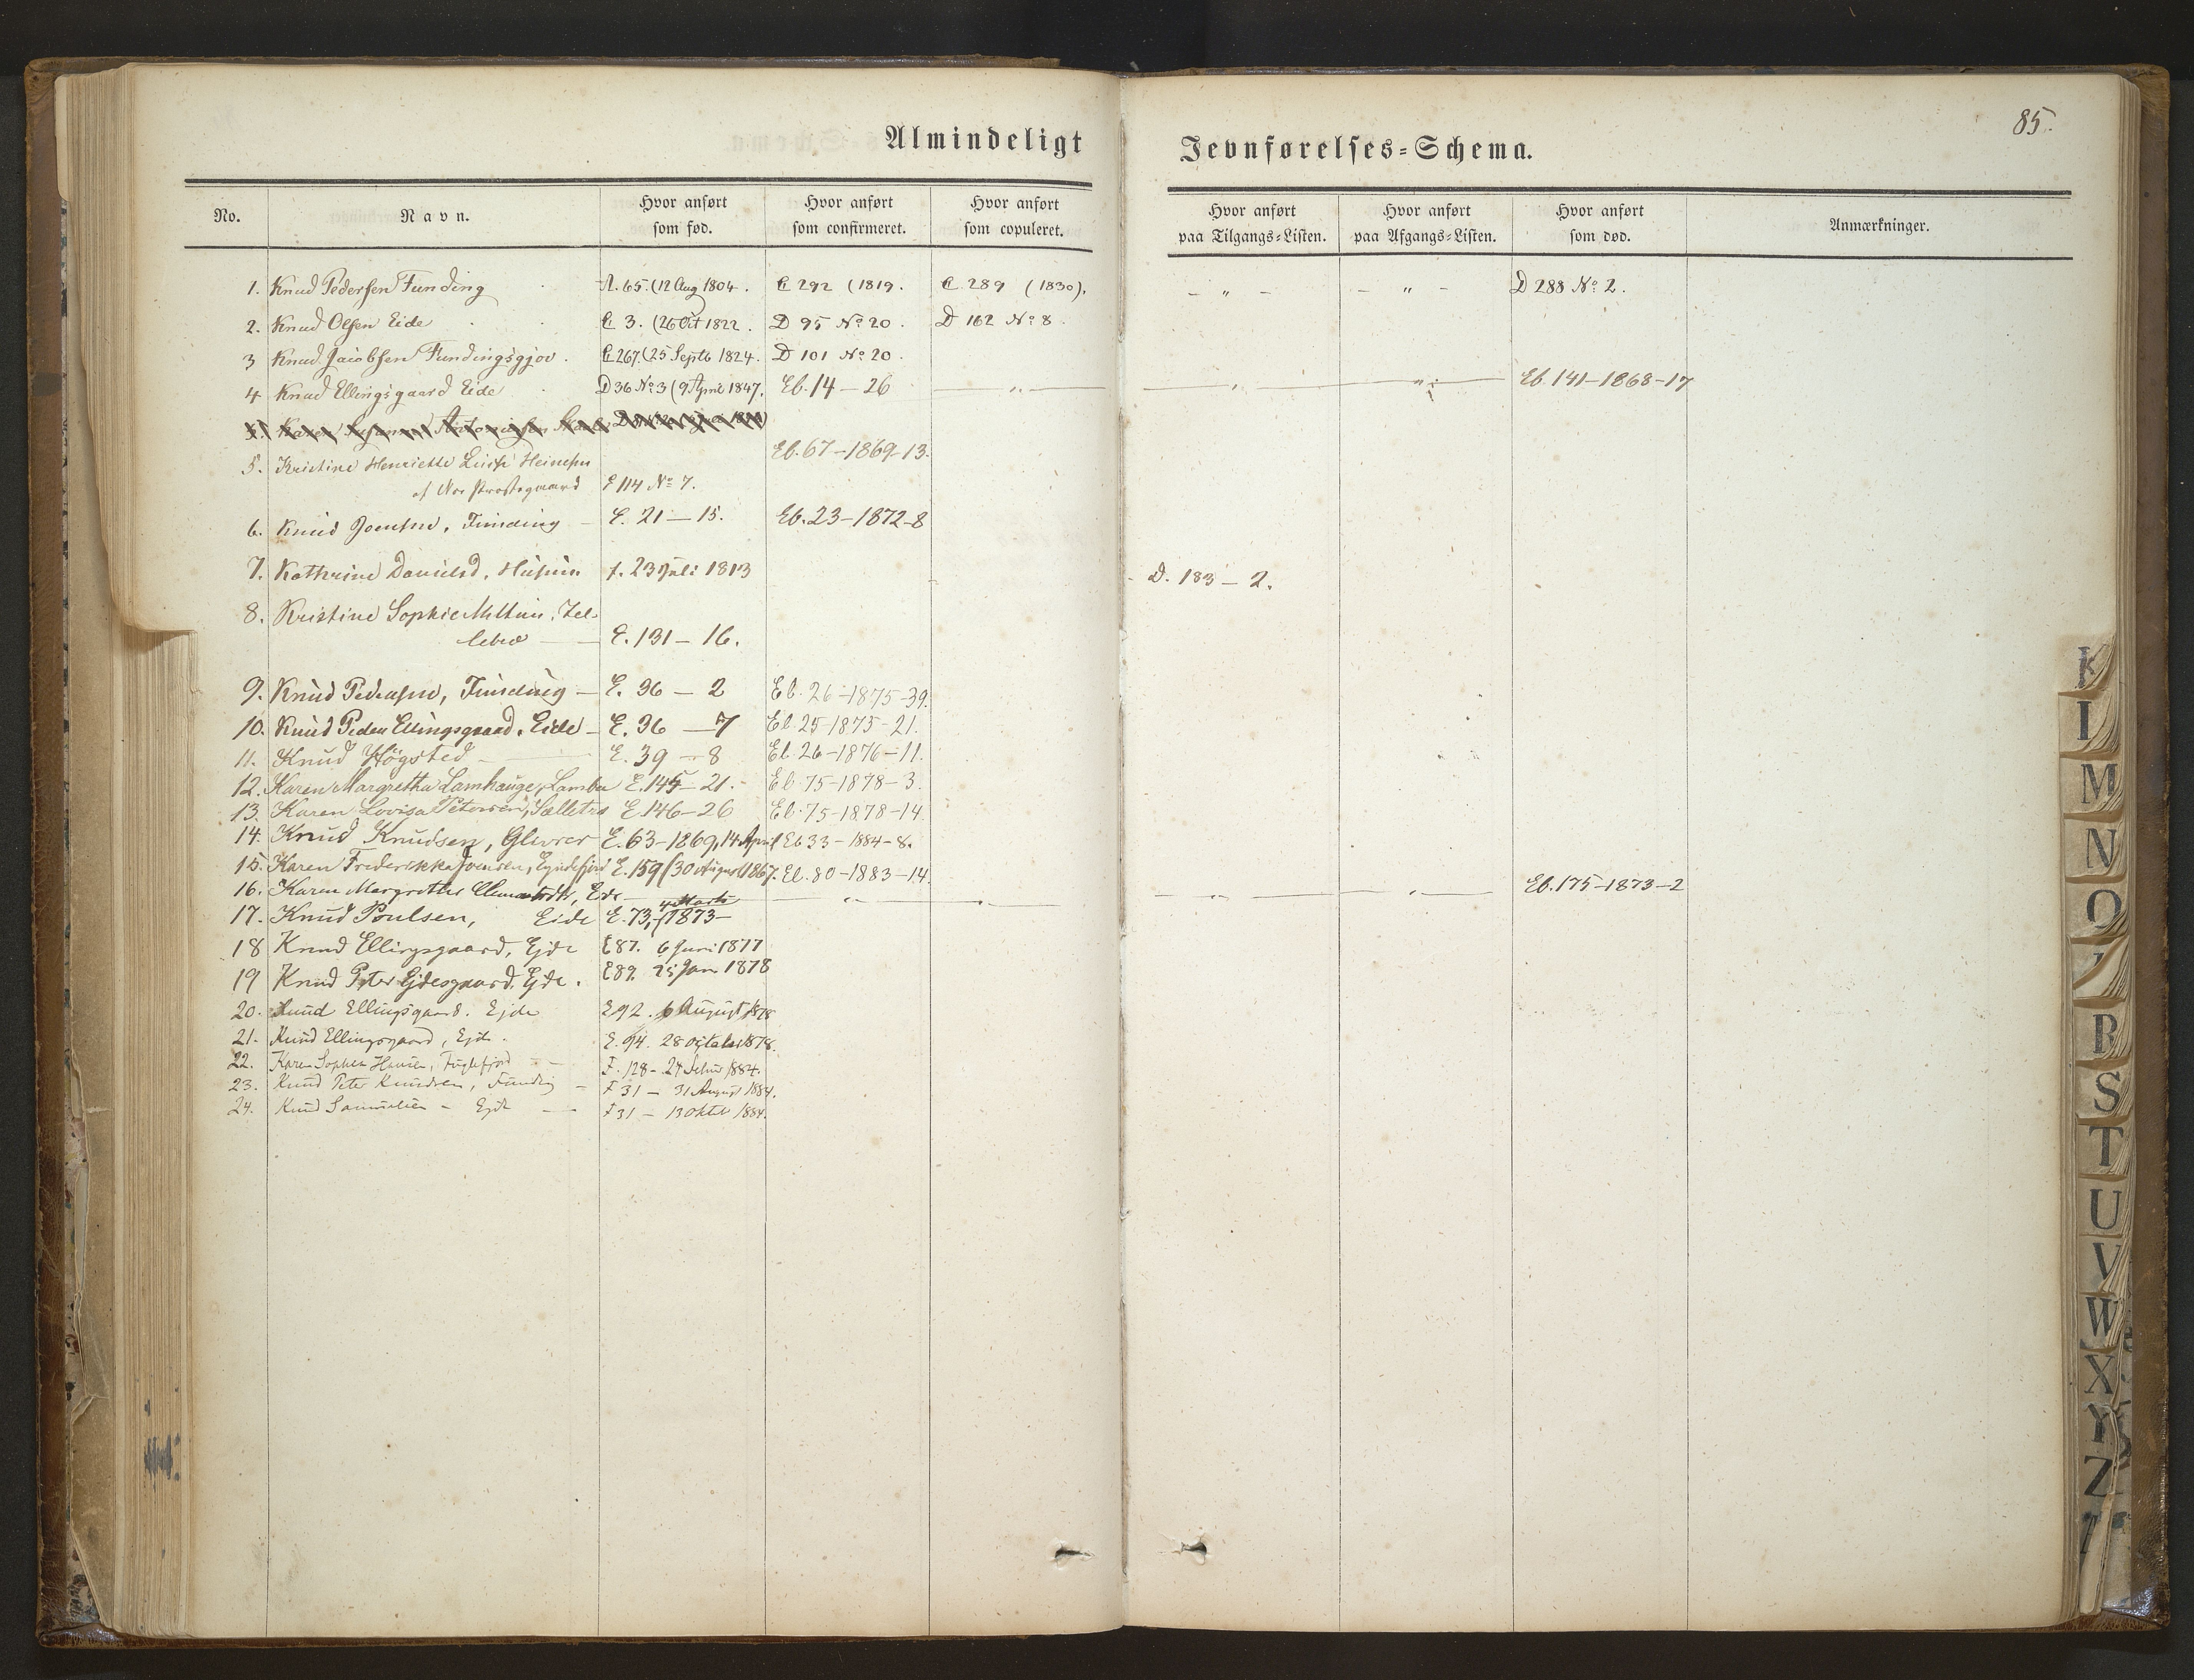 85.
Almindeligt Jevnførelses-Schema.
No. Navn. Hvor anført som fød. Hvor anført som confirmeret. Hvor anført som copuleret. Hvor anført paa Tilgangs-Listen. Hvor anført paa Afgangs-Listen. Hvor anført som død. Anmærkninger.
1. Knud Pedersen Funding A. 65. (12 Aug 1804. C 292 (1819. C. 289 (1830). - " - - " - D 288 No 2.
2. Knud Olsen Eide C 3. (26 Oct 1822. D 95 No 20. D 162 No 8.
3 Knud Jacobsen Fundingsgjov. C 267. (25 Septb 1824. D 101 No 20.
4 Knud Ellingsgaard Eide D 36 No 3 (9 April 1847. Eb. 14 - 26 " " " Eb. 141-1868-17
5. Karen
5. Kristine Henriette Luise Heinesen Eb. 67-1869-13.
af Nes Præstegaard E 114 No 7.
6. Knud Joensen, Funding - E. 21 - 15. Eb. 23-1872-8
7. Kathrine Danielsd. Husum f. 23 Juli 1813 D. 183 - 2.
8. Kristine Sophie
E. 131 - 16.
9. Knud Pedersen, Funding - E. 36 - 2 Eb. 26-1875-39.
10. Knud Peder Ellingsgaard, Eide - E. 36 - 7 Eb. 25-1875-21.
11. Knud Högsted - E. 39 - 8 Eb. 26-1876-11.
12. Karen Margretha Lamhauge, Lamba E. 145 - 21. Eb. 75-1878-3.
13. Karen Lovisa Petersen, Salletræ E. 146-26 Eb. 75-1878-14.
14. Knud Knudsen, Glivrer E. 63-1869, 14 April Eb 33-1884-8.
15. Karen Frederikka Joensen, Fundefjord E. 159 (30 August 1867. Eb. 80-1883-14.
16. Karen Margrethe Eide - " " " " Eb. 175-1873-2
17. Knud Poulsen, Eide E. 73, (4 Marts 1873-
18 Knud Ellingsgaard, Ejde E 87. 6 Juni 1877
19 Knud Peter Ejdesgaard, Ejde. E 89. 25 Jan 1878
20. Knud Ellingsgaard. Ejde E 92. 6 August 1878
21. Knud Ellingsgaard, Ejde. E. 94. 28 October 1878.
22. Karen Sophia Hansen, Fuglefjord - F. 128 - 24 Febru 1884.
23. Knud Peter Knudsen, Funding - F 31 - 31 August 1884.
24. Knud Samuelsen - Ejde - F 31 - 13 Oktob 1884.
K
I
M
N
O
R
S
T
U
V
W
X
Y
Z